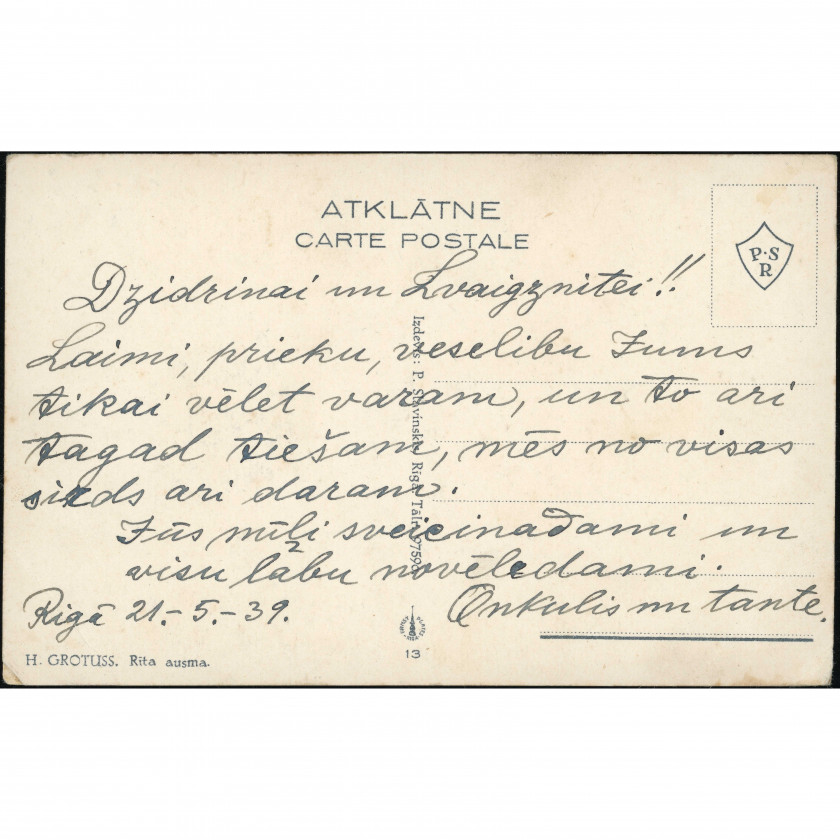 ATKLĀTNE
CARTE POSTALE
P·S
R
Dzidrinai un Zvaigznitei!!
Laimi, prieku, veselibu Jums
tikai vēlet varam, un to ari
tagad tiešam, mēs no visas
sirds ari daram.
Jūs mīļi sveicinadami un
visu labu novēledami.
Rīgā 21.-5.-39. Onkulis un tante.
Izdevis: P. Slavinskis, Rīgā, Tālr. 97599
H. GROTUSS. Rīta ausma.
13